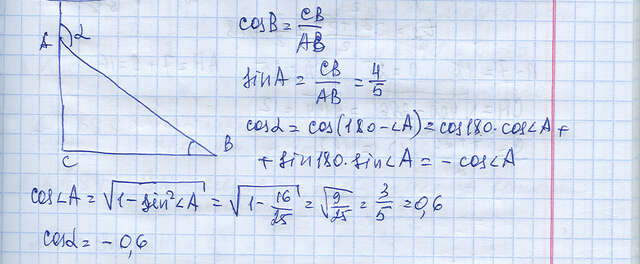 cosB = CB/AB
A α
sinA = CB/AB = 4/5
cosα = cos(180-∠A) = cos180·cos∠A +
+ sin180·sin∠A = - cos∠A
B
C
cos∠A = √(1-sin²∠A) = √(1-16/25) = √(9/25) = 3/5 = 0,6
cosα = -0,6